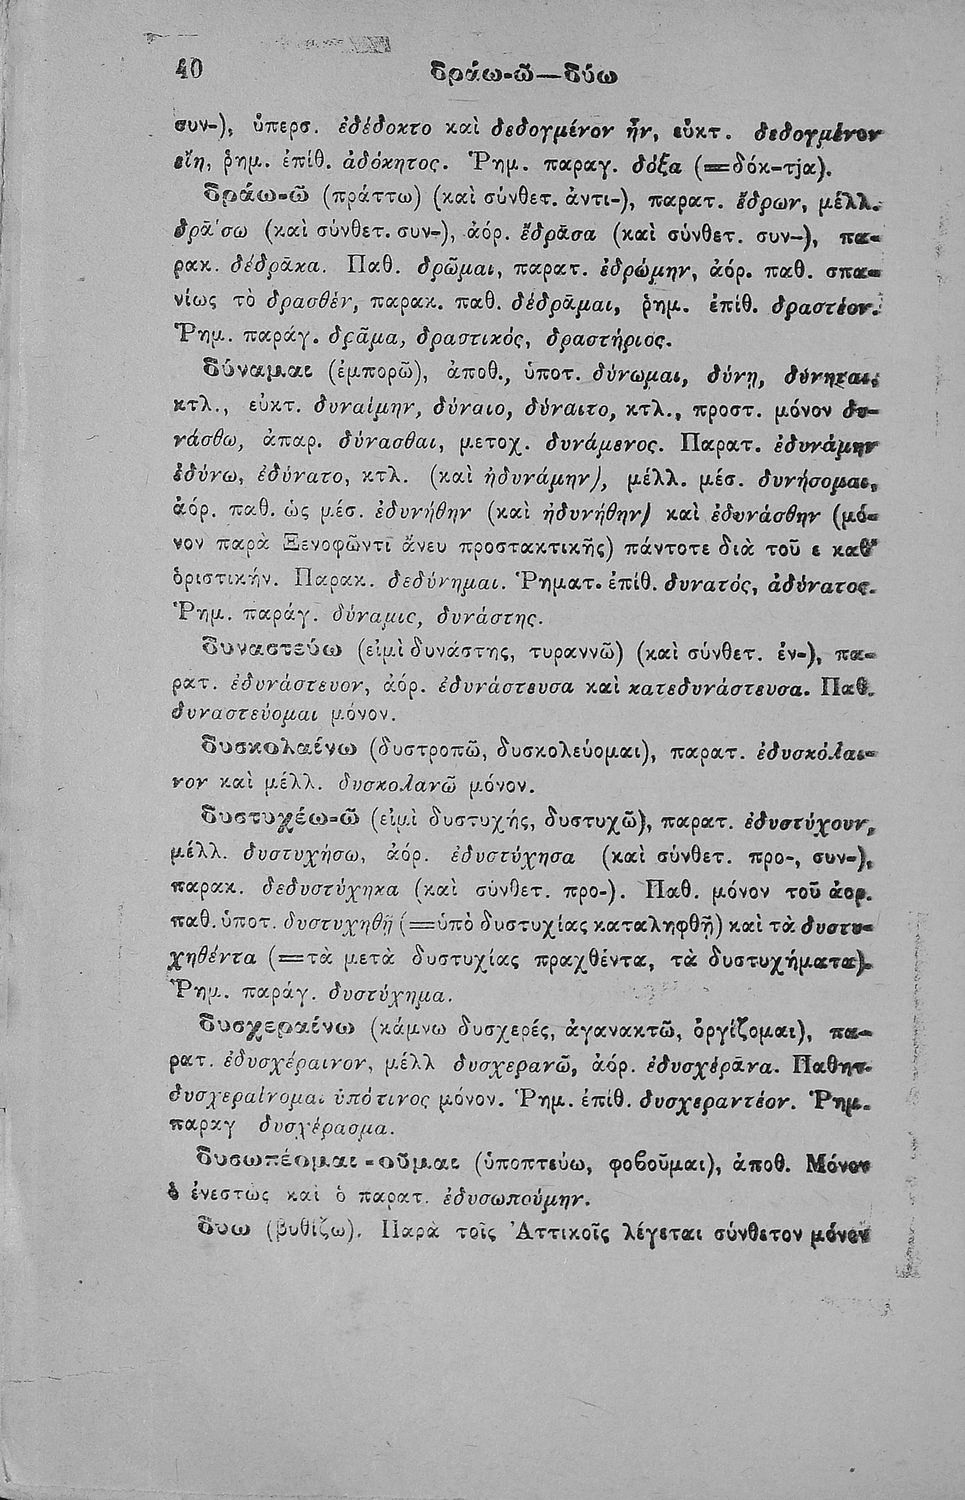 40
δράω-ῶ—δύω
συν-), ὑπερσ. ἐδέδοκτο καὶ δεδογμένον ἦν, εὐκτ. δεδογμένον
εἴη, ῥημ. ἐπίθ. ἀδόκητος. Ῥημ. παραγ. δόξα (=δόκ-τjα).
δράω-ῶ (πράττω) (καὶ σύνθετ. ἀντι-), παρατ. ἔδρων, μέλλ.
δρᾱ́σω (καὶ σύνθετ. συν-), ἀόρ. ἔδρᾱσα (καὶ σύνθετ. συν-), πα-
ρακ. δέδρᾱκα. Παθ. δρῶμαι, παρατ. ἐδρώμην, ἀόρ. παθ. σπα-
νίως τὸ δρασθέν, παρακ. παθ. δέδρᾱμαι, ῥημ. ἐπίθ. δραστέον.
Ῥημ. παράγ. δρᾶμα, δραστικός, δραστήριος.
δύναμαι (ἐμπορῶ), ἀποθ., ὑποτ. δύνωμαι, δύνῃ, δύνηται,
κτλ., εὐκτ. δυναίμην, δύναιο, δύναιτο, κτλ., προστ. μόνον δυ-
νάσθω, ἀπαρ. δύνασθαι, μετοχ. δυνάμενος. Παρατ. ἐδυνάμην
ἐδύνω, ἐδύνατο, κτλ. (καὶ ἠδυνάμην), μέλλ. μέσ. δυνήσομαι,
ἀόρ. παθ. ὡς μέσ. ἐδυνήθην (καὶ ἠδυνήθην) καὶ ἐδυνάσθην (μό-
νον παρὰ Ξενοφῶντι ἄνευ προστακτικῆς) πάντοτε διὰ τοῦ ε καθ'
ὁριστικήν. Παρακ. δεδύνημαι. Ῥηματ. ἐπίθ. δυνατός, ἀδύνατος.
Ῥημ. παράγ. δύναμις, δυνάστης.
δυναστεύω (εἰμὶ δυνάστης, τυραννῶ) (καὶ σύνθετ. ἐν-), πα-
ρατ. ἐδυνάστευον, ἀόρ. ἐδυνάστευσα καὶ κατεδυνάστευσα. Παθ.
δυναστεύομαι μόνον.
δυσκολαίνω (δυστροπῶ, δυσκολεύομαι), παρατ. ἐδυσκόλαι-
νον καὶ μέλλ. δυσκολανῶ μόνον.
δυστυχέω-ῶ (εἰμὶ δυστυχής, δυστυχῶ), παρατ. ἐδυστύχουν,
μέλλ. δυστυχήσω, ἀόρ. ἐδυστύχησα (καὶ σύνθετ. προ-, συν-),
παρακ. δεδυστύχηκα (καὶ σύνθετ. προ-). Παθ. μόνον τοῦ ἀορ.
παθ. ὑποτ. δυστυχηθῇ (=ὑπὸ δυστυχίας καταληφθῇ) καὶ τὰ δυστυ-
χηθέντα (=τὰ μετὰ δυστυχίας πραχθέντα, τὰ δυστυχήματα).
Ῥημ. παράγ. δυστύχημα.
δυσχεραίνω (κάμνω δυσχερές, ἀγανακτῶ, ὀργίζομαι), πα-
ρατ. ἐδυσχέραινον, μέλλ δυσχερανῶ, ἀόρ. ἐδυσχέρᾱνα. Παθητ.
δυσχεραίνομαι ὑπό τινος μόνον. Ῥημ. ἐπίθ. δυσχεραντέον. Ῥημ.
παραγ δυσχέρασμα.
δυσωπέομαι-οῦμαι (ὑποπτεύω, φοβοῦμαι), ἀποθ. Μόνον
ὁ ἐνεστὼς καὶ ὁ παρατ. ἐδυσωπούμην.
δύω (βυθίζω). Παρὰ τοῖς Ἀττικοῖς λέγεται σύνθετον μόνον